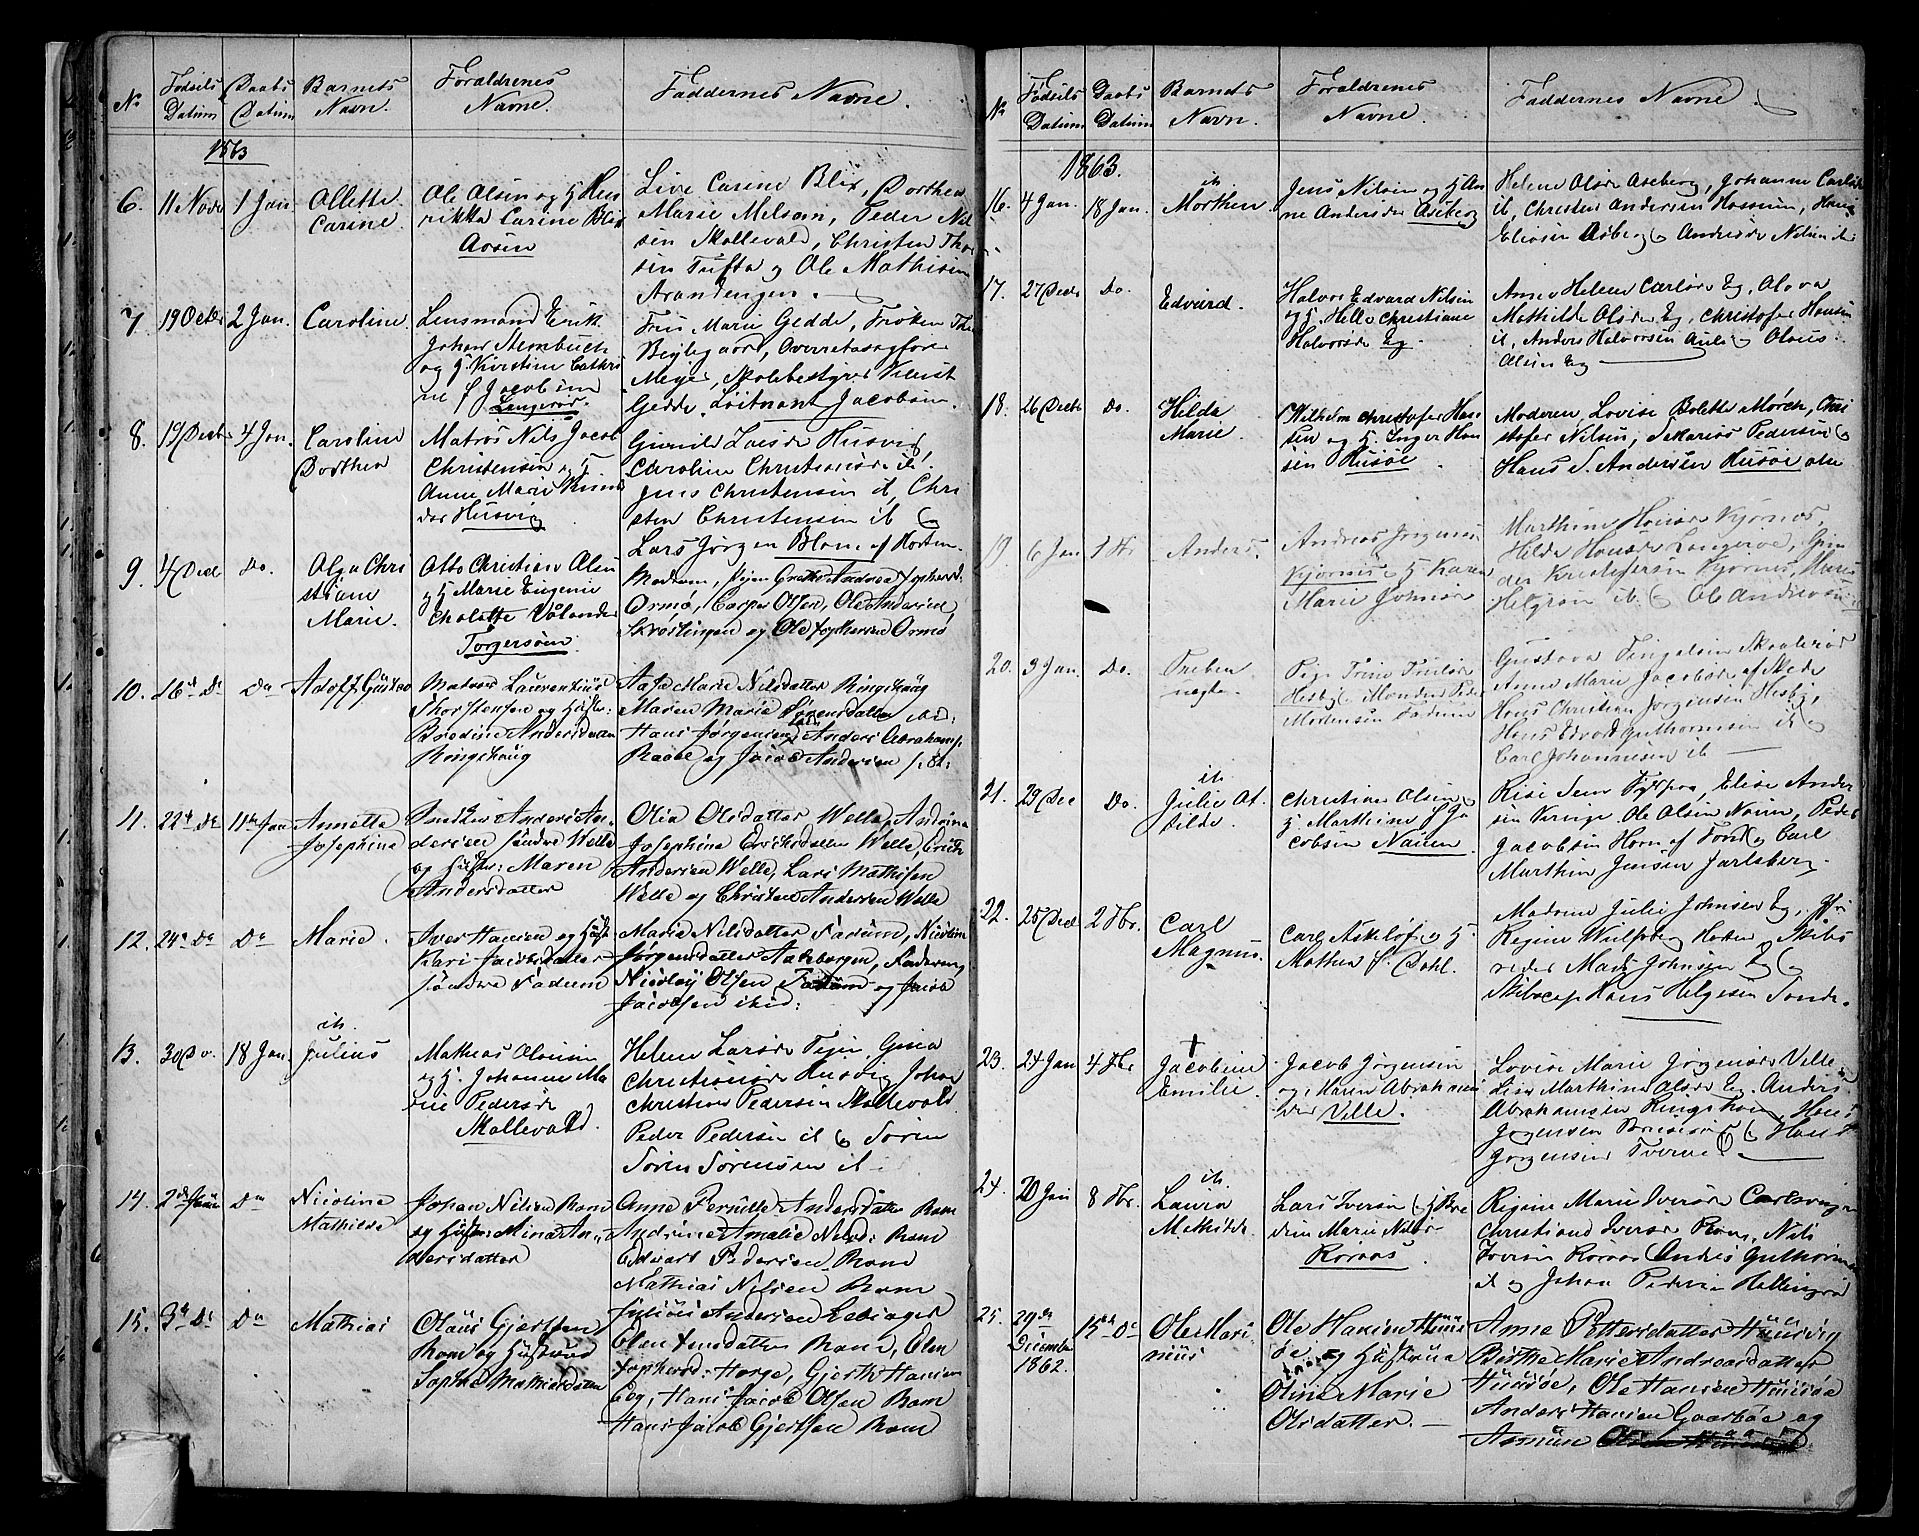 No
Fødsels Datum
Daabs Datum
Barnets Navn.
Forældrenes Navne.
Faddernes Navne.
1863
6. 11 Novbr 1 Jan. Ollette Carine.
Ole Olsen og H. Hen
rikke Carine Blix
Aasen
Live Carine Blix, Dorthea
Marie Melsom, Peder Nil
sen Mollevald, Christen Tho
sen Tufte og Ole Mathisen
Arendengen.
7. 19 Octbr 2 Jan. Caroline
Lensmand Erik
Johan Stembuch
og H. Kirstine Cathri
ne f Jacobsen
Lengerød.
Fru Marie Gedde, Frøken The
Beylegaard, Overretssagfører
Meyer, Skolebestyrer Knut
Gedde, Løitnant Jacobsen.
8. 19 Decbr 4 Jan. Caroline Dorthea
Matros Nils Jacob
Christensen og H.
Anne Marie
der Husvig
Gunild Larsdr Husvig
Caroline Christensdr it
Jens Christensen it, Chri
sten Christensen it og
Lars Jørgen Blom af Horten.
9. 4 Decb Do. Olga Chri
stiane
Marie.
Otto Christian Olsen
og H. Marie Eugenie
Chalotte Vålander
Torgersøen.
Madam, Pigen Grethe Andrea Tophersd:
Ormø, Casper Olsen, Ole Andersen,
Skrøslingen og Ole Tophersen Ormø
10. 16d Do Do Adolf Gustav
Matros Laurentius
Thorstensen og Hustr:
Bredine Andersdatter
Ringshaug
Aase Marie Nilsdatter Ringshaug
Maren Marie Sørensdatter ibid:
Hans Jørgensen, Anders Abrahams.
Raabe og Jacob Andersen ibd:
11. 22de Do 11te Jan Annette
Josephine
Anders An
dersen Søndre Welle
og Hustr: Maren
Andersdatter
Olea Olsdatter Welle, Andrine
Josephine Eriksdatter Welle, Erik
Andersen Welle, Lars Mathisen
Welle og Christen Andersen Welle
12. 24de Do Do Marie.
Iver Hansen og Hust
Kari Jacobsdatter
Søndre Fadum
Marie Nilsdatter Fadum, Nicoline
Jørgensdatter Aakbergen, Faderen,
Nicolay Olsen Fadum og Jacob
Jacobsen ibid:
13. 30 Do. 18 Jan. Julius
Mathias Olausen
og H. Johanne Ma
rie Pedersdr
Mollevald.
Helene Larsdr Teien, Gina
Christiansdr Husvig, Johan
Christian Pedersen Mollevald
Peder Pedersen it og Søren
Søren Sørensen it
14. 2den Januar Do Nicoline
Mathilde
Johan Nilsen Rom
og Hustru Mina An
dersdatter
Anne Pernille Andersdatter Rom
Andrine Amalie Nilsd: Rom
Edvart Pedersen Rom
Mathias Nilsen Rom
15. 3de Do Do Mathias
Olaus Gjertsen
Rom og Hustrue
Sophie Mathisdatter
Julius Andersen
Olen datter Rom, Elen
Tophersd: Horge, Gjerth Hansen
Eeg, Hans Jacob Olsen Rom
Hans Jacob Gjertsen Rom
No
Fødsels Datum
Daabs Datum
Barnets Navn.
Forældrenes Navne.
Faddernes Navne.
1863.
16. 4 Jan. 18 Jan. Morthen
Jens Nilsen og H. An
ne Andersdr Aseberg
Helene Olsdr Aseberg, Johanne Carlsdr
it, Christen Andersen Hossum, Hans
Eliasen Asberg og Andreas Nilsen it
17. 27 Decb Do. Edvard.
Halvor Edvard Nilsen
og H. Helle Christiane
Halvorsdr Eg.
Anne Helene Carlsdr Eg, Olava
Mathilde Olsdr Eg, Christofer Hansen
it, Anders Halvorsen Auli og Olaus
Olsen Eg
18. 26 Decb Do. Hilda
Marie.
Wilhelm Christofer Han
sen og H. Inger Han
sen Husøe.
Moderen, Lovise Bolette Mørch, Chri
stofer Nilsen, Sekarias Pedersen og
Hans S. Andersen Husøe alle
19. 6 Jan 1 Fbr Anders.
Andreas Jørgensen
Kjørnes & H. Karen
Marie Johnsdr
Marthine Hansdr Kjørnes,
Hilda Hansdr Langerøe,
Kristofersen Kjørnes,
Helgesen it og Ole Andersen it
20. 3 Jan Do. Preben
Pige Trine Trulsdr
Hesby, Manden Peder
Mortensen Fadum
Gustava Tingelsen
Anne Marie Jacobsdr af Slede
Hans Christian Jørgensen Hesby,
Hans Edvard Guthormsen it og
Carl Johannesen it
21. 29 Dec Do. Julie Ot
tilde.
Christian Olsen og
H. Martheine f Ja
cobsen Nauen.
Elise Ander
sen Ringe, Ole Olsen Nauen, Peder
Jacobsen Horn af Tønsb og Carl
Marthin Jensen Jarlsberg.
22. 25 Decb 2 Fbr. Carl
Magnus.
Carl Askeløf og H.
Mathea f. Dahl.
Madame Julie Johnsen Eg,
Regine Wulfsberg Horten, Skibs
reder Mads Johnsen Eg og
Skibscap Hans Helgesen Tønsb.
23. 24 Jan 4 Fbr Jacobine
Emilie.
Jacob Jørgensen
og Maren Abrahams
der Velle.
Lovise Marie Jørgensdr Velle
Lise Marthine Olsdr Eg, Anders
Abrahamsen Ringshaug, Hans
Jørgensen og Hans
Jørgensen Tveene
24. 20 Jan 8 Fbr. Laura
Mathilde.
Lars Iversen og H Bre
dine Marie Nilsdr
Roraas.
Regine Marie Iversdr Carlsvingen
Christiane Iversdr Rom, Nils
Iversen Roraas, Andreas Guthormsen
it og Johan Pedersen Hellingrød
25. 29de
December
1862. 15de Do Ole Mari
nius
Ole Hansen Huus
øe og Hustrue
Oline Marie
Olsdatter.
Anne Pettersdatter Huusvig
Birthe Marie Andreasdatter
Huusøe, Ole Hansen Huusøe
Anders Hansen Gaarbøe og
Asmun